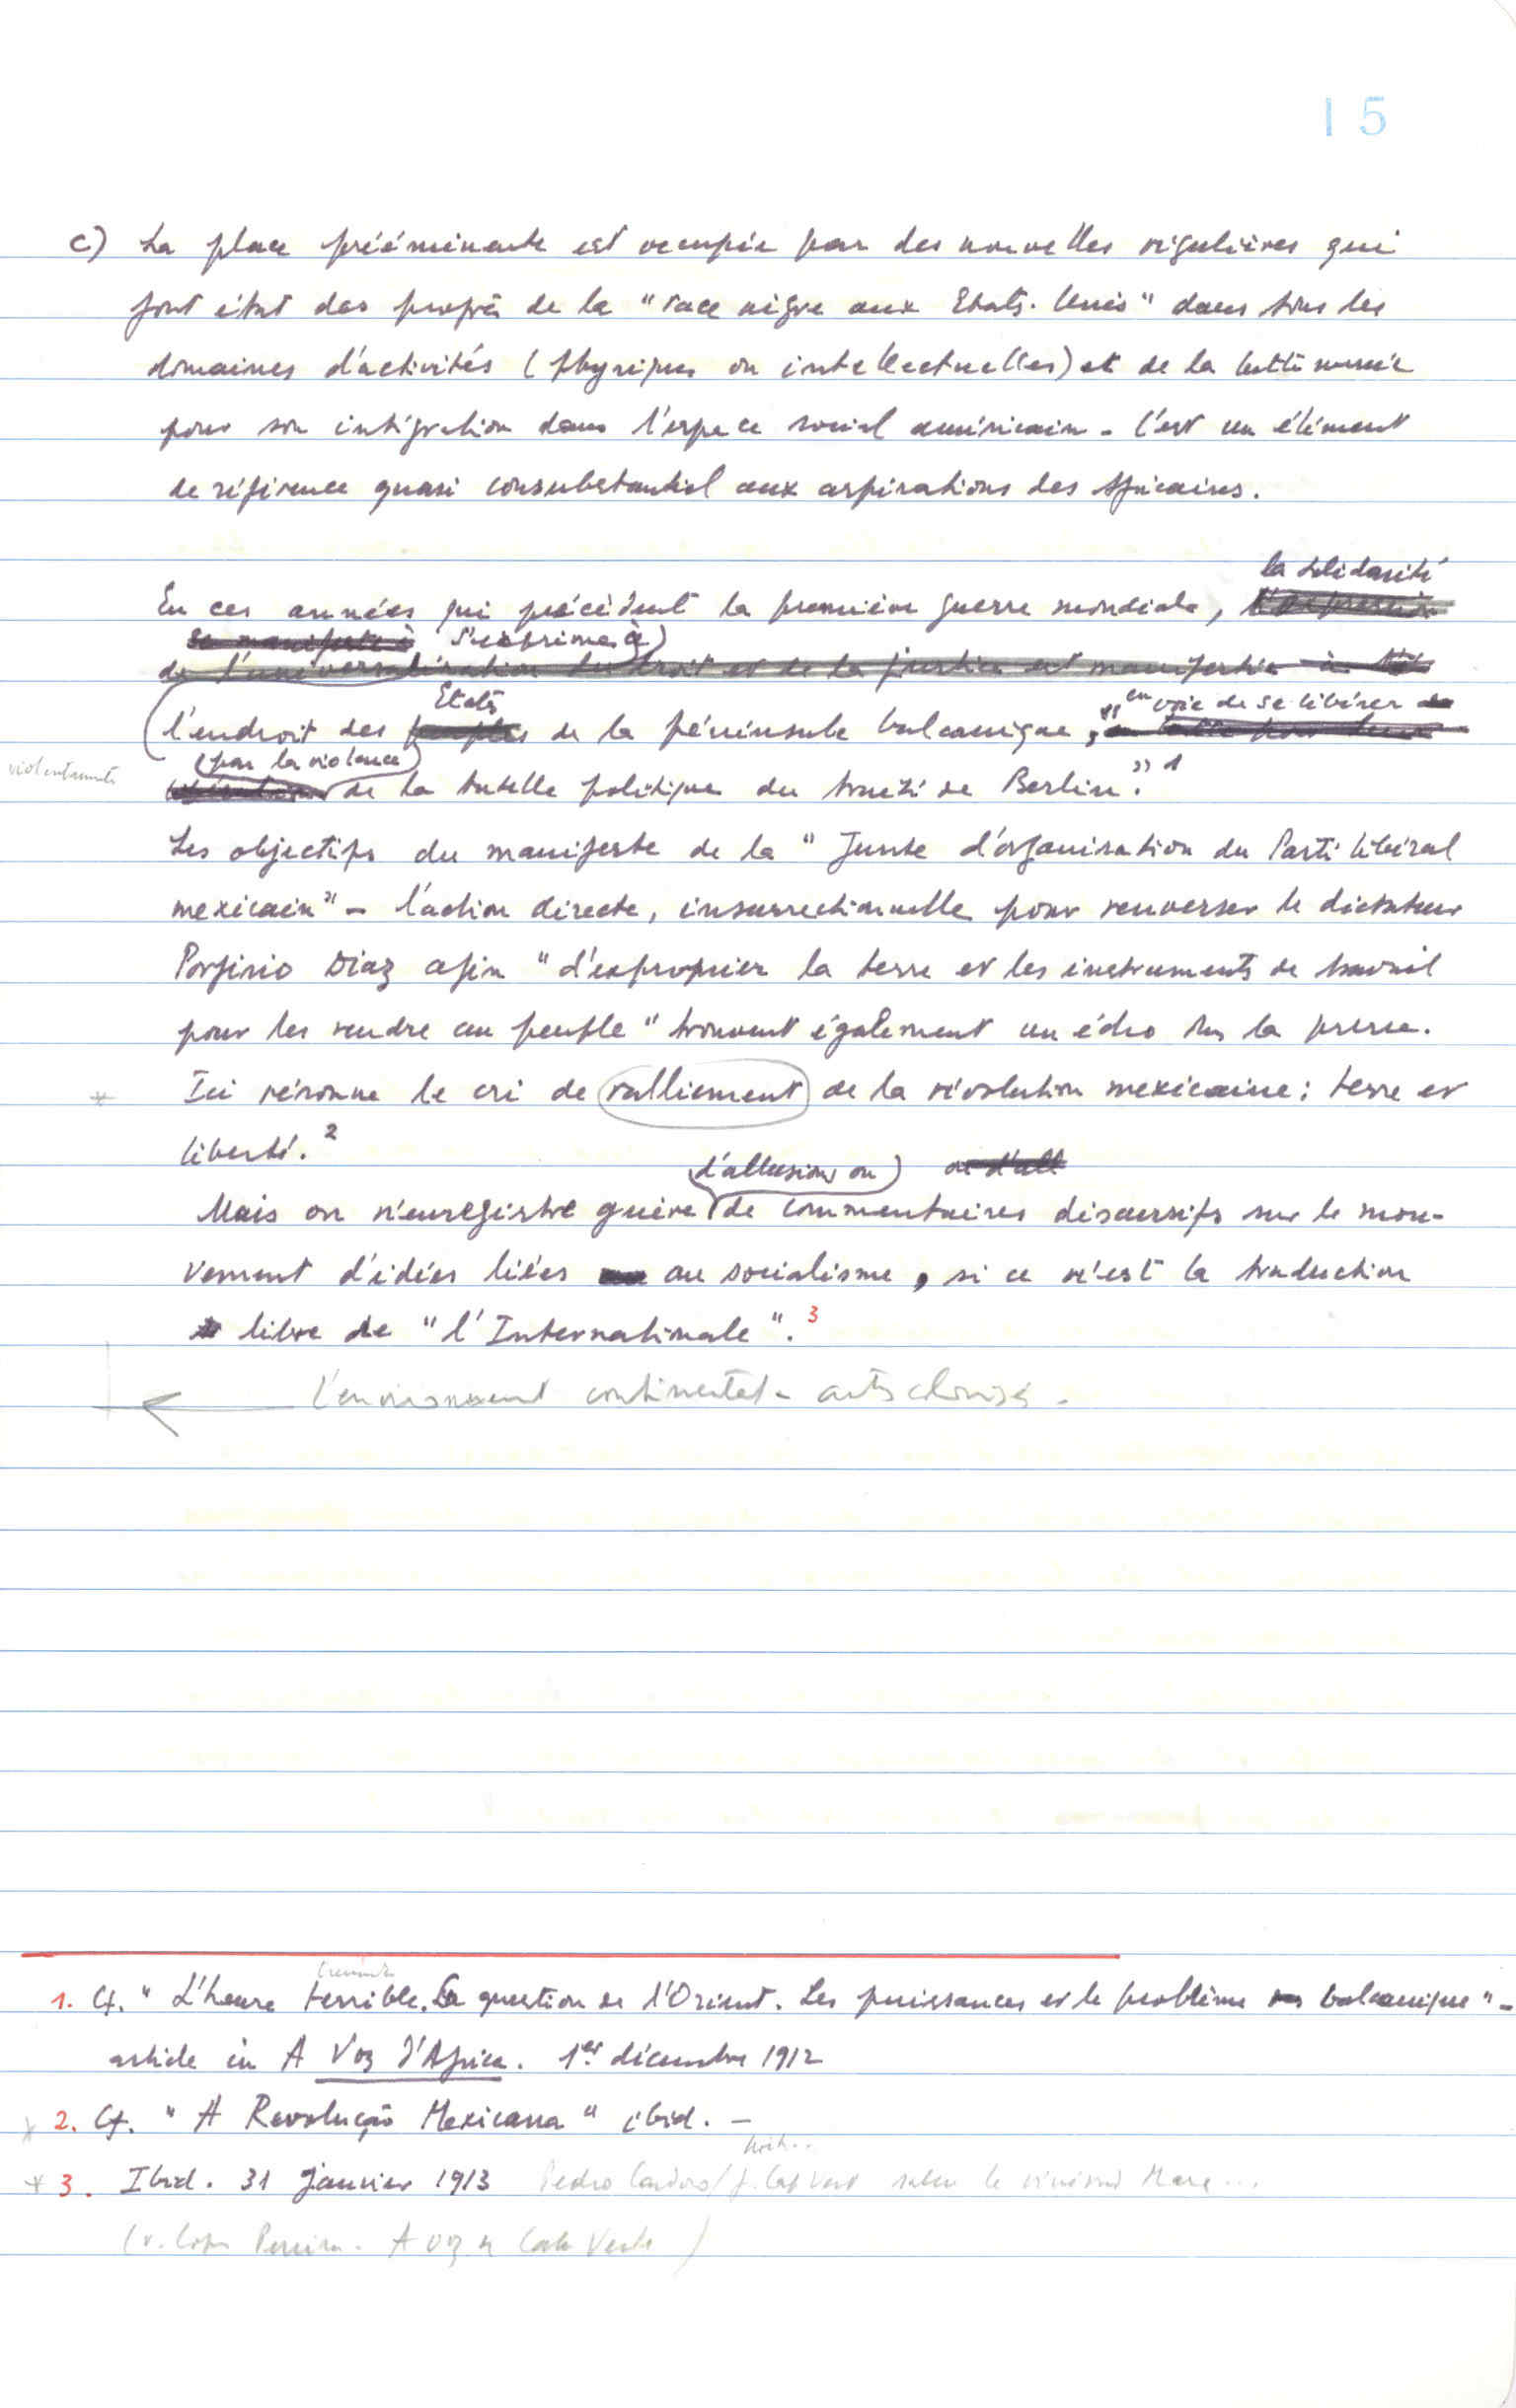 15
c) La place prééminente est occupée par des nouvelles régulières qui
font état des progrès de la "race nègre aux Etats-Unis" dans tous les
domaines d'activités (physiques ou intellectuelles) et de la lutte menée
pour son intégration dans l'espace social américain - C'est un élément
de référence quasi consubstantiel aux aspirations des Africains.
la solidarité
En ces années qui précèdent la première guerre mondiale, l'expression
se manifeste à s'exprime à
de l'universalisation du droit et de la justice est manifestée à
Etats en voie de se libérer
l'endroit des peuples de la péninsule balcanique, " en lutte pour leur
(par la violence)
violemment
libération de la tutelle politique du traité de Berlin." 1
Les objectifs du manifeste de la "Junte d'organisation du Parti libéral
mexicain" - l'action directe, insurrectionnelle pour renverser le dictateur
Porfirio Diaz afin "d'exproprier la terre et les instruments de travail
pour les rendre au peuple" trouvent également un écho dans la presse.
* Ici résonne le cri de ralliement de la révolution mexicaine : terre et
liberté. 2
d'allusions ou) ou d'all
Mais on n'enregistre guère de commentaires discursifs sur le mou-
vement d'idées liées au socialisme, si ce n'est la traduction
libre de "l'Internationale". 3
L'environnement continental -
1. Cf. " L'heure terrible. La question de l'Orient. Les puissances et le problème balcanique" -
article in A Voz d'Africa. 1er décembre 1912
* 2. Cf. " A Revolução Mexicana " ibid. -
* 3. Ibid. 31 janvier 1913 Pedro Cardoso / J. Cap Vert
(v. Lopes Pereira - A Voz de Cabo Verde)